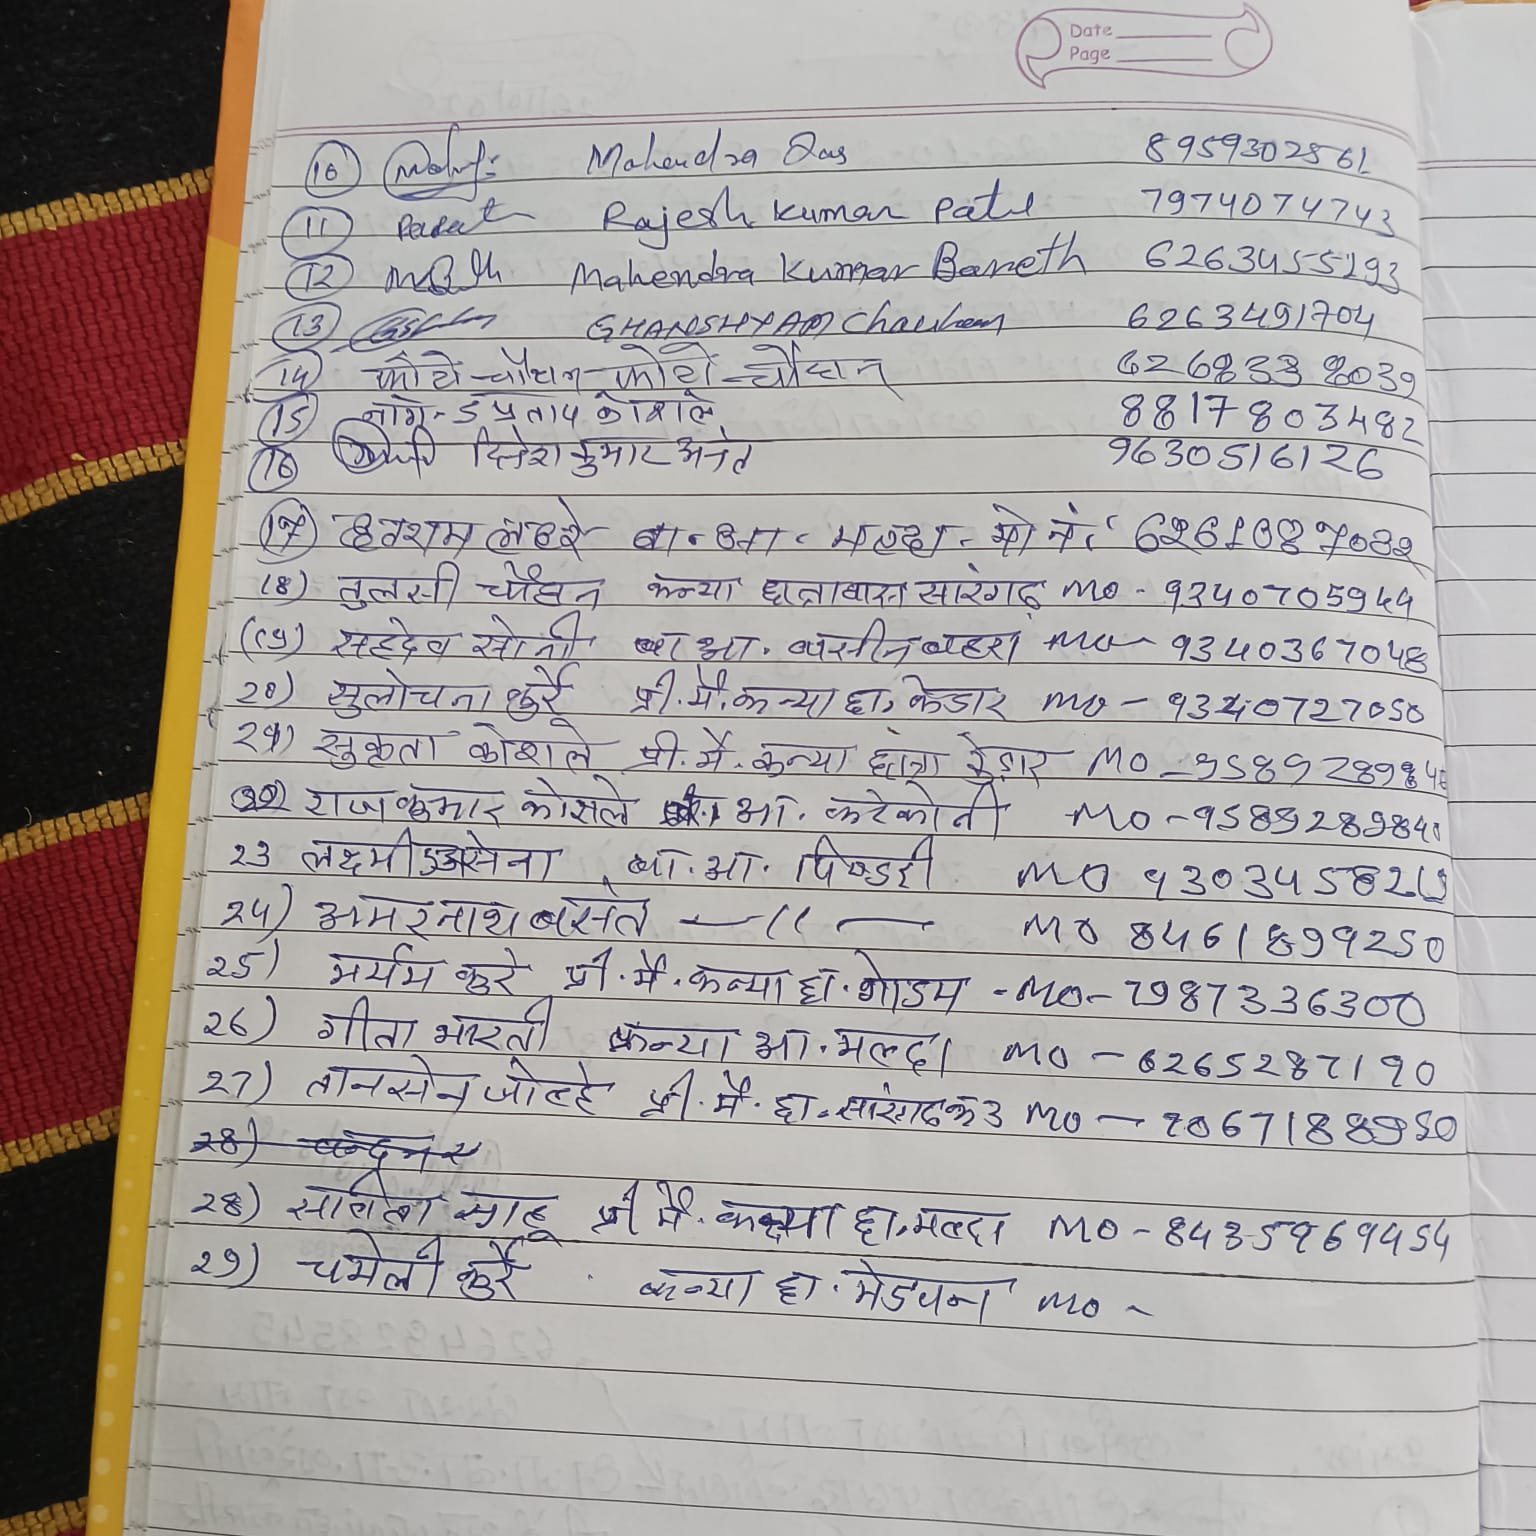 Date
Page
10 Mahendra Das 8959302561
11 Rajesh Kumar Patel 7974074743
12 Mahendra Kumar Bareth 6263455293
13 GHANSHYAM Chauhan 6263491704
14 फोटो चौहान फोटो चौहान 6268338039
15 प्रताप कोशले 8817803482
16 दिनेश कुमार अनंत 9630516126
17 लहरे बा. आ. मल्दा. मो नं. 6261087082
18) तुलसी चौहान कन्या छात्रावास सारंगढ़ MO - 9340705944
(19) सहदेव सोनी बा आ. MO - 9340367048
20) सुलोचना कुर्रे प्री. मै. कन्या छा. केडार MO - 9340727050
21) सुकृता कोशले प्री. मै. कन्या छात्रा केडार MO - 95892898
22 राजकुमार कोसले बा. आ. कटेकोनी MO - 9589289840
23 लक्ष्मी बा. आ. पिण्डरी MO
24) अमरनाथ बसंत — 11 — MO 8461899250
25) मर्यम कुरे प्री. मै. कन्या छा. गोडम - MO - 7987336300
26) गीता भारती कन्या आ. मल्दा MO - 6265287190
27) तानसेन जोल्हे प्री. मै. छा. सारंगढ क 3 MO -
28)
28) सविता साहू प्री मै. कन्या छा. मल्दा MO - 8435969454
29) चमेली कुर्रे कन्या छा. MO -